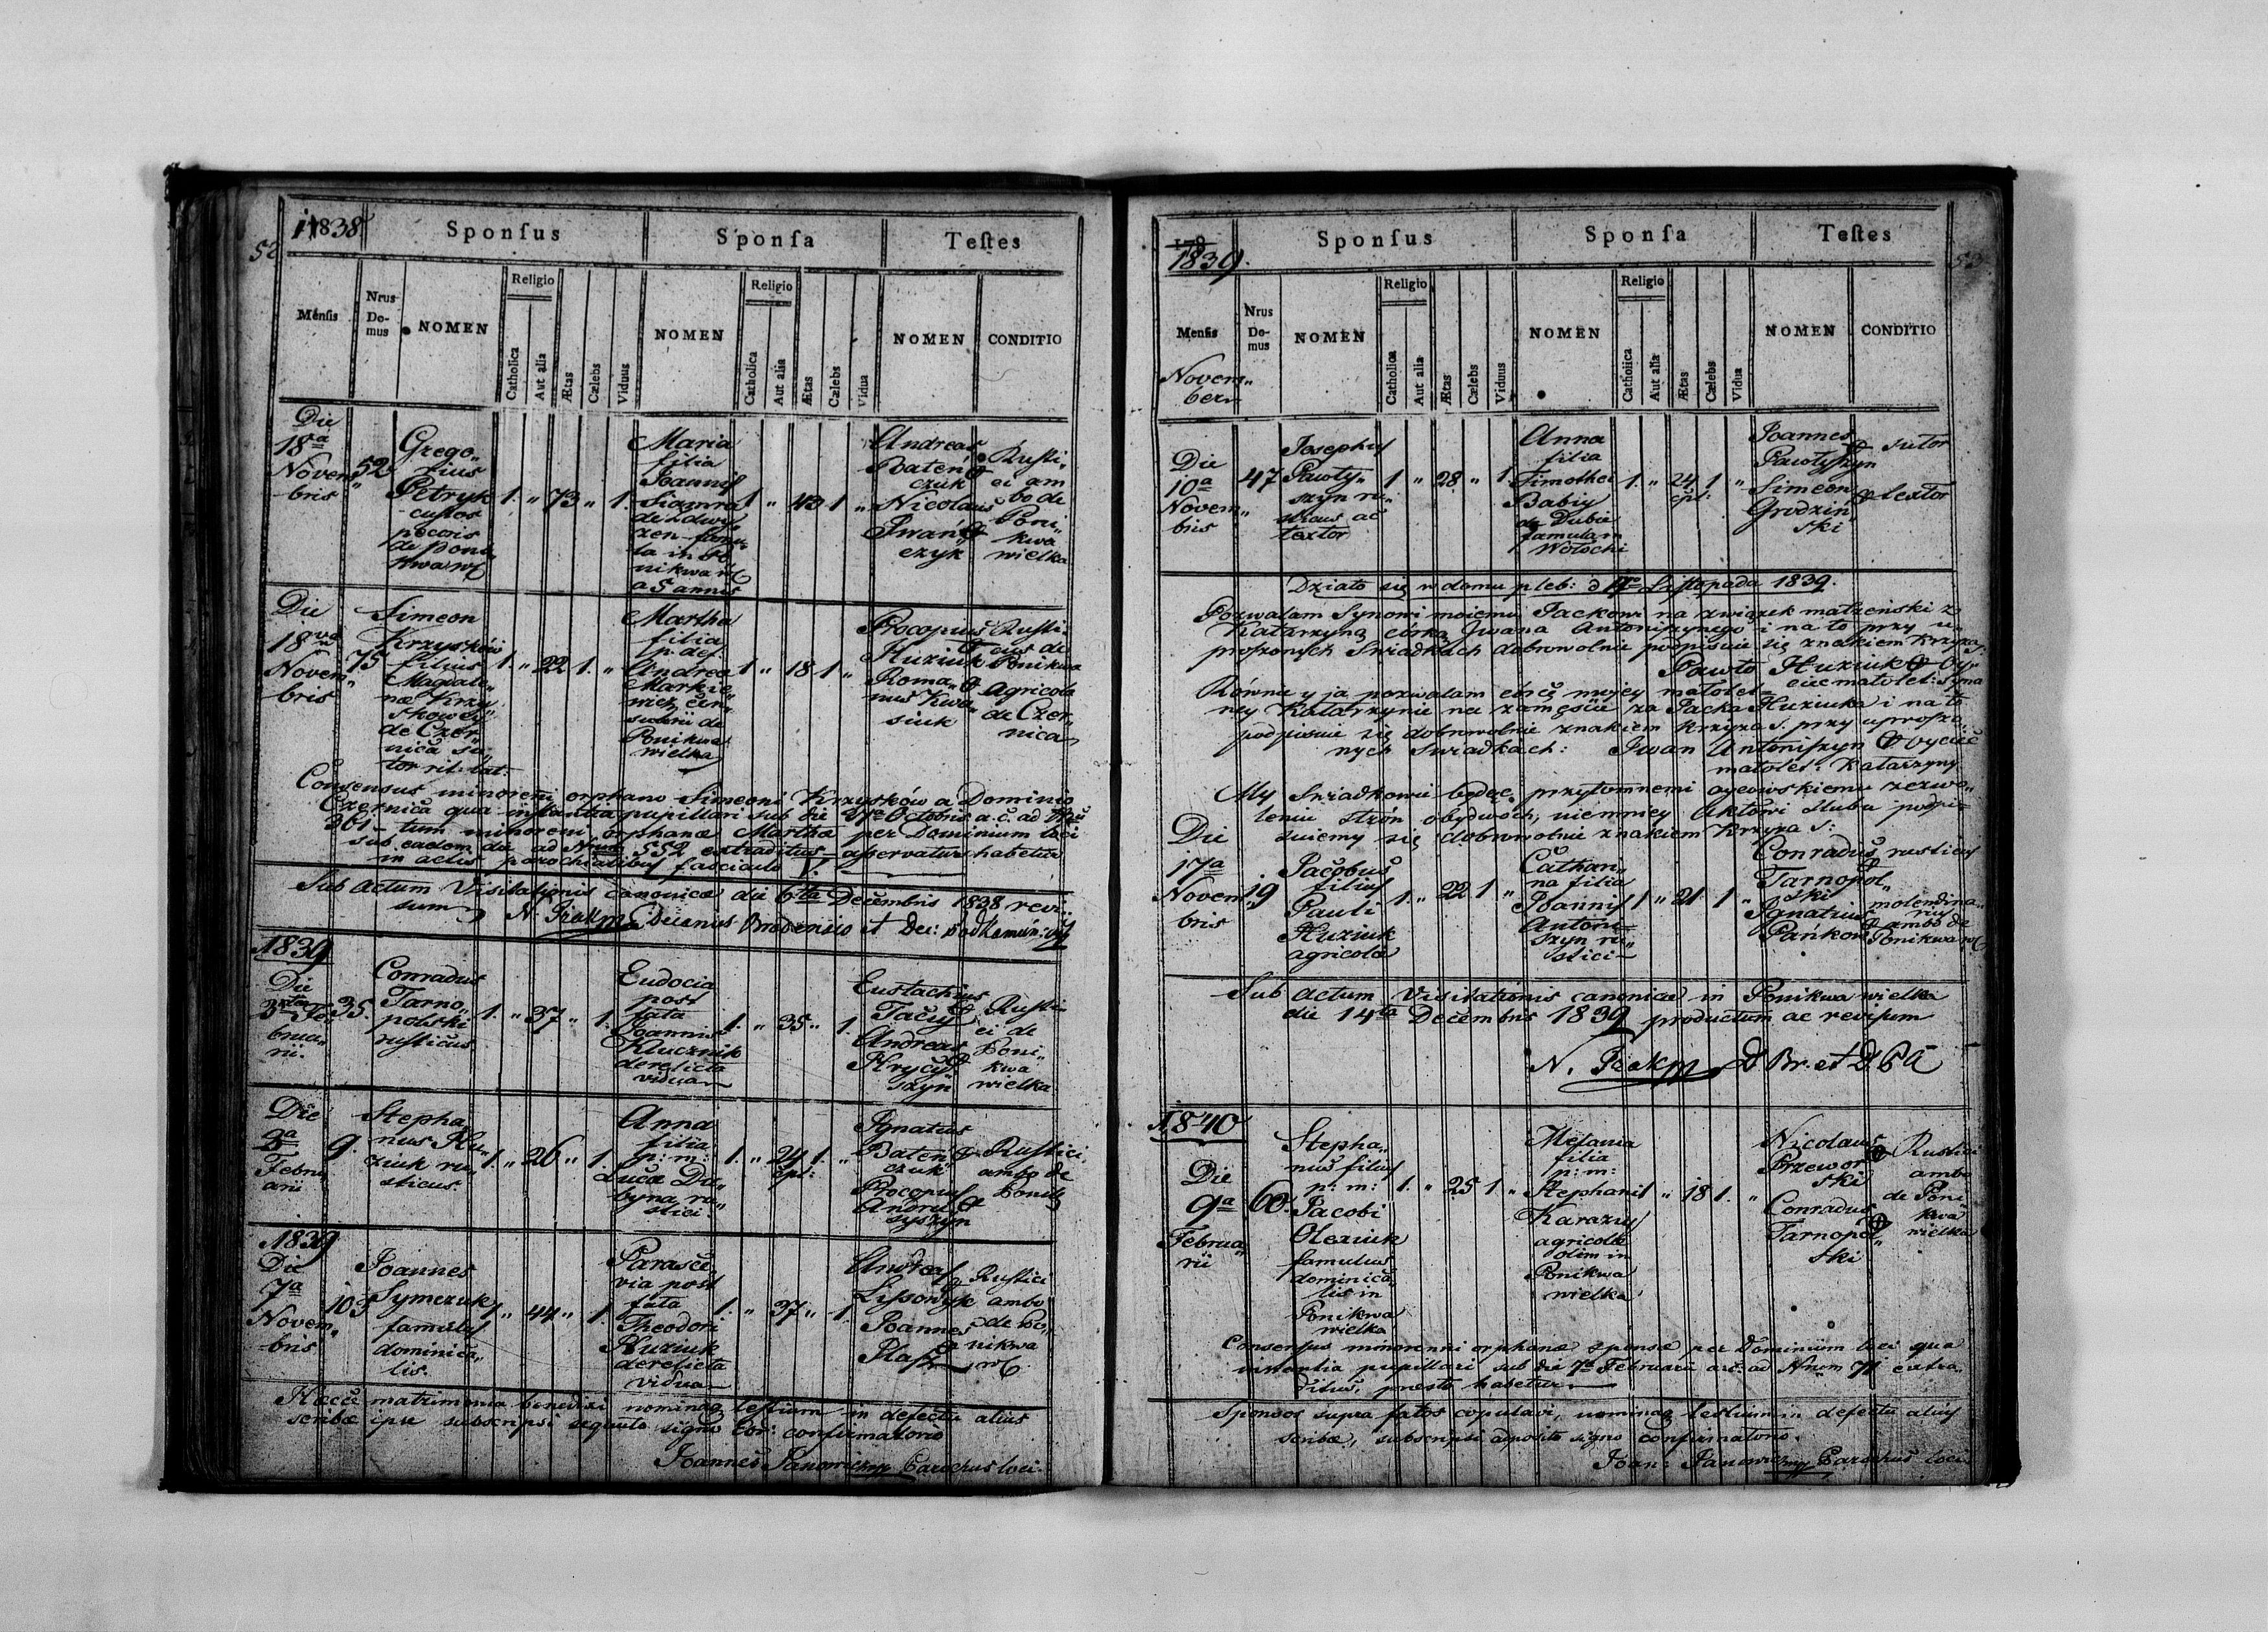 52
1838
Sponſus
Sponſa
Teſtes
Menſis
Nrus Do- mus
NOMEN
Religio
Catholica
Aut alia
Ætas
Cælebs
Viduus
NOMEN
Religio
Catholica
Aut alia
Ætas
Cælebs
Vidua
NOMEN
CONDITIO
Die
18a
Novem„
bris
52
Grego„
rius
Petryk
custos
pecoris
de Poni
kwa w
1. „ 73 „ 1.
Maria
filia
Joannis
de
famu„
la in Po
nikwa w
a 5 annis
1 „ 43 1 „
Andreas
Bateń
czuk
Nicolaus
Iwań
czyk
Rusti„
ci am
bo de
Poni„
kwa
wielka
Die
18va
Novem„
bris
75
Simeon
Krzysków
filius
Magdale„
næ Krzy
skowey
de Czer„
nica su„
tor rit: lat:
1. „ 22 1. „
Martha
filia
p. def.
Andrea
Markie„
wicz
de
Ponikwa
wielka
1 „ 18 1 „
Procopius
Huziuk
Roma„
nus Kwa„
siuk
Rusti„
cus de
Ponikwa
Agricola
de Czer„
nica
Consensus minorenni orphano Simeoni Krzysków a Dominio
Czernica qua instantia pupillari sub die Octobris a. c. ad
301 – tum minorenni orphanæ Martha per Dominium loci
sub eadem da ad Nrum 552 extraditus aſservatus habetur
in actis parochialibus fasciculo V.
Sub actum Visitationis canonicæ die 6ta Decembris 1838 revi„
sum
N. Decanus Brodensis et Dec:
1839
Die
Fe„
brua„
rii.
35.
Conradus
Tarno„
polski
rusticus
1. „ 37 „ 1.
Eudocia
post
fata
Joannis
Klucznik
derelicta
vidua
1. „ 35 „ 1.
Eustachius
Taciy
Andreas
Hrycy
szyn
Rusti„
ci de
Poni„
kwa
wielka
Die
3a
Febru
arii
9.
Stepha„
nus Hu„
ziuk ru„
sticus.
1. „ 26 „ 1.
Anna
filia
p: m:
Lucæ Du„
byna ru„
stici
1. „ 24 1. „
Ignatius
Bateń
czuk
Procopius
Andru
syszyn
Rustici
ambo de
Ponik
1839
Die
7a
Novem„
bris
103
Joannes
Symczuk
famulus
dominica„
lis.
1 „ 44 „ 1.
Parasce
via post
fata
Theodori
Huziuk
derelicta
vidua
1. „ 37 „ 1.
Andreas
Lissowyk
Joannes
Rustici
ambo
de Po„
nikwa
w.
Hæcce matrimonia benedixi nominaq testium in defectu alius
scribæ ipse subscripsi signo eor: confirmatorio
Joannes Parochus loci.
53
1839.
Sponſus
Sponſa
Teſtes
Menſis
Novem„
ber
Nrus Do- mus
NOMEN
Religio
Catholica
Aut alia
Ætas
Cælebs
Viduus
NOMEN
Religio
Catholica
Aut alia
Ætas
Cælebs
Vidua
NOMEN
CONDITIO
Die
10a
Novem„
bris
47
Josephus
Pawty„
szyn ru„
sticus ac
textor
1 „ 28 „ 1.
Anna
filia
Timothei
Babiy
de Dubie
famulam
Wołochi
1. „ 24 1 „
Joannes
Pawłyszyn
Simeon
Grodzin
ski
sutor
textor
Działo się w domu pleb: d Listopada 1839.
Pozwalam Synowi moiemu Jackowi na związek małżeński z
Katarzyną córką Iwana Antoniszynego i na to przy u„
proszonych Świadkach dobrowolnie podpisuie się znakiem krzyża
Pawło Huziuk oy„
ciec małolet: Syna
Równie y ja pozwalam córce mojey małolet„
ney Katarzynie na zamęście za Jacka Huziuka i na to
podpisuie się dobrowolnie znakiem krzyża S. przy uproszo„
nych Swiadkach: Iwan Antoniszyn oyciec
małolet: Katarzyny
My Swiadkowie będąc przytomnemi oycowskiemu zezwo„
leniu stron obydwóch, niemniey Aktowi ślubu podpi„
suiemy się dobrowolnie znakiem krzyża S:
Die
17a
Novem
bris
19
Jacobus
filius
Pauli
Huziuk
agricola
1. „ 22 1 „
Cathari„
na filia
Joannis
Antoni„
szyn ru„
stici
1 „ 21 1 „
Conradus
Tarnopol„
ski
Ignatius
Pańkow
rusticus
molendina„
rius
ambo de
Ponikwa w
Sub actum Visitationis canonicæ in Ponikwa wielka
die 14ta Decembris 1839 productum ac revisum
N. D Br. et D
1840
Die
9a
Februa„
rii
60.
Stepha„
nus filius
p: m:
Jacobi
Olexiuk
famulus
dominica„
lis in
Ponikwa
wielka
1. „ 25 1. „
Melania
filia
p: m:
Stephani
Karaziy
agricolæ
olim in
Ponikwa
wielka
1 „ 18 1. „
Nicolaus
Przewor
ski
Conradus
Tarnopol„
ski
Rustici
ambo
de Poni
kwa
wielka
Consensus minorenni orphanæ sponsæ per Dominium loci qua
instantia pupillari sub die 7a Februarii a. c. ad Nrum 71 extra„
ditus, præsto habetur
Sponsos supra fatos copulavi, nominaq testium in defectu alius
scribæ, subscripsi apposito signo confirmatorio.
Joan: Parochus loci